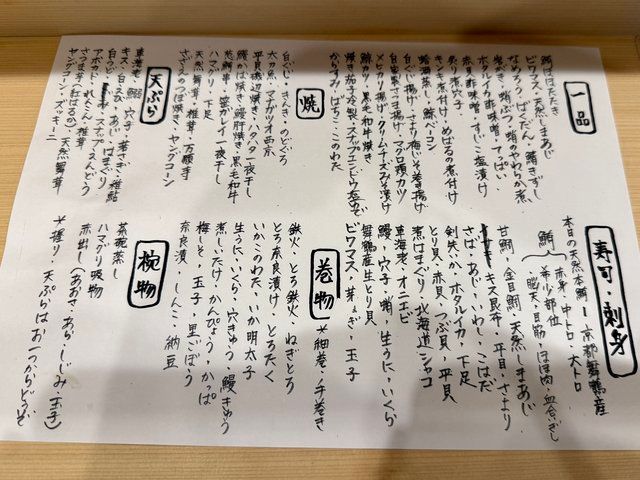 一品
鯛はほたたき
ビワマス・天然しまあじ
なめろう・ばくだん・鯖きずし
岩かき・蛸ぶつ・蛸のやわらか煮
ホタルイカ酢味噌・てっぱい
赤貝酢味噌・すじこ塩漬け
炙り煮穴子
キンキ煮付け・めばるの煮付け
蛤海蒸し・鱈ベーコン
白ぐじ揚げ・さより梅じそ巻き揚げ
白髪葱さま揚げ・マグロ頭カツ
メヒカリ揚げ・クリームチーズみそ漬け
鯨カツ・黒毛和牛焼き
焼き茄子冷製・スナップエンドウ塩ゆで
からすみ・ばちこ・このわた
焼
白ぐじ・きんき・のどぐろ
太刀魚・マナガツオ西京
平貝磯辺焼き・ハタハタ一夜干し
鰻かば焼き・鰻肝焼き・黒毛和牛
葱鮪串・笹カレイ一夜干し
ハマグリ・下足
天然舞茸・椎茸・万願寺
さざえのつぼ焼き・ヤングコーン
天ぷら
車海老・鱚・穴子・若さぎ・稚鮎
キス・白えび・あじ・はまぐり
アボカド・れんこん・椎茸
さつま芋(紅はるか)・天然舞茸
ヤングコーン・ズッキーニ
寿司・刺身
本日の天然本鮪―京都舞鶴産
鮪
赤身・中トロ・大トロ
希少部位
脳天・目筋・ほほ肉・血合いぎし
甘鯛・金目鯛・天然しまあじ
キス昆布・平目・さより
さば・あじ・いわし・こはだ
剣先いか・ホタルイカ・下足
とり貝・赤貝・つぶ貝・平貝
煮はまぐり・北海道シャコ
車海老・オニエビ
鰻・穴子・蛸・生うに・いくら
舞鶴産生とり貝
ビワマス・芽ねぎ・玉子
巻物
*細巻・手巻き
鉄火・とろ鉄火・ねぎとろ
とろ奈良漬け・とろたく
いかこのわた・いか明太子
生うに・いくら・穴きゅう・鰻きゅう
煮しいたけ・かんぴょう・かっぱ
梅しそ・玉子・里ごぼう
奈良漬・しんこ・納豆
椀物
茶碗蒸し
ハマグリ吸物
赤出し(あおさ・あら・しじみ・玉子)
*握り・天ぷらはお一つからどうぞ